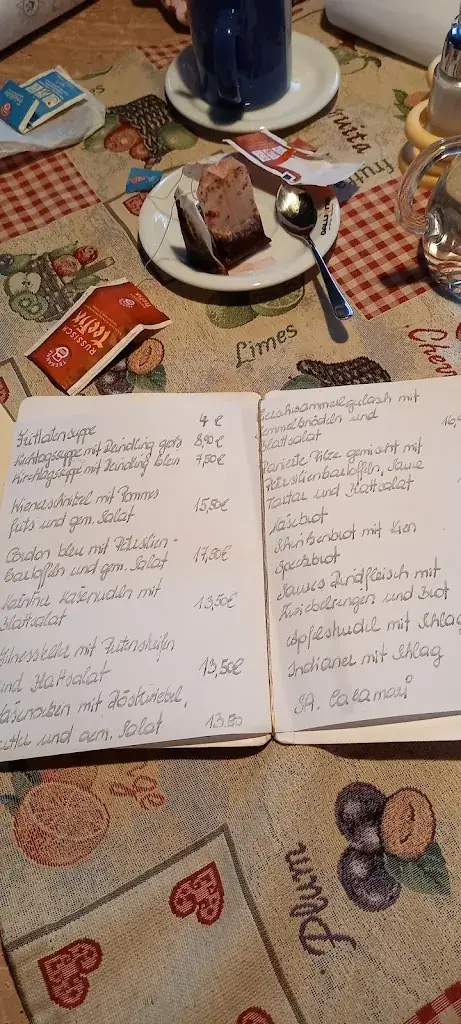 fruita
frutta
DALLMAYR
RUSSISCH
TeeFix
Limes
Frittatensuppe 4 €
Kirchtagssuppe mit Reindling groß 8,90€
Kirchtagssuppe mit Reindling klein 7,50€
Wienerschnitzel mit Pommes
frits und gem. Salat 15,50€
Cordon bleu mit Petersilien-
kartoffeln und gem. Salat 17,50€
Kärntner Käsenudeln mit
Blattsalat 13,50€
Fitnessteller mit Putenstreifen
und Blattsalat 13,50€
mit Röstzwiebel,
und gem. Salat 13.50
mit
und
Blattsalat
Panierte Pilze gemischt mit
Petersilienkartoffeln, Sauce
Tartar und Blattsalat
Käsebrot
Schinkenbrot mit Kren
Speckbrot
Saures Rindfleisch mit
Zwiebelringen und Brot
Apfelstrudel mit Schlag
Indianer mit Schlag
SA. Calamari
Plum